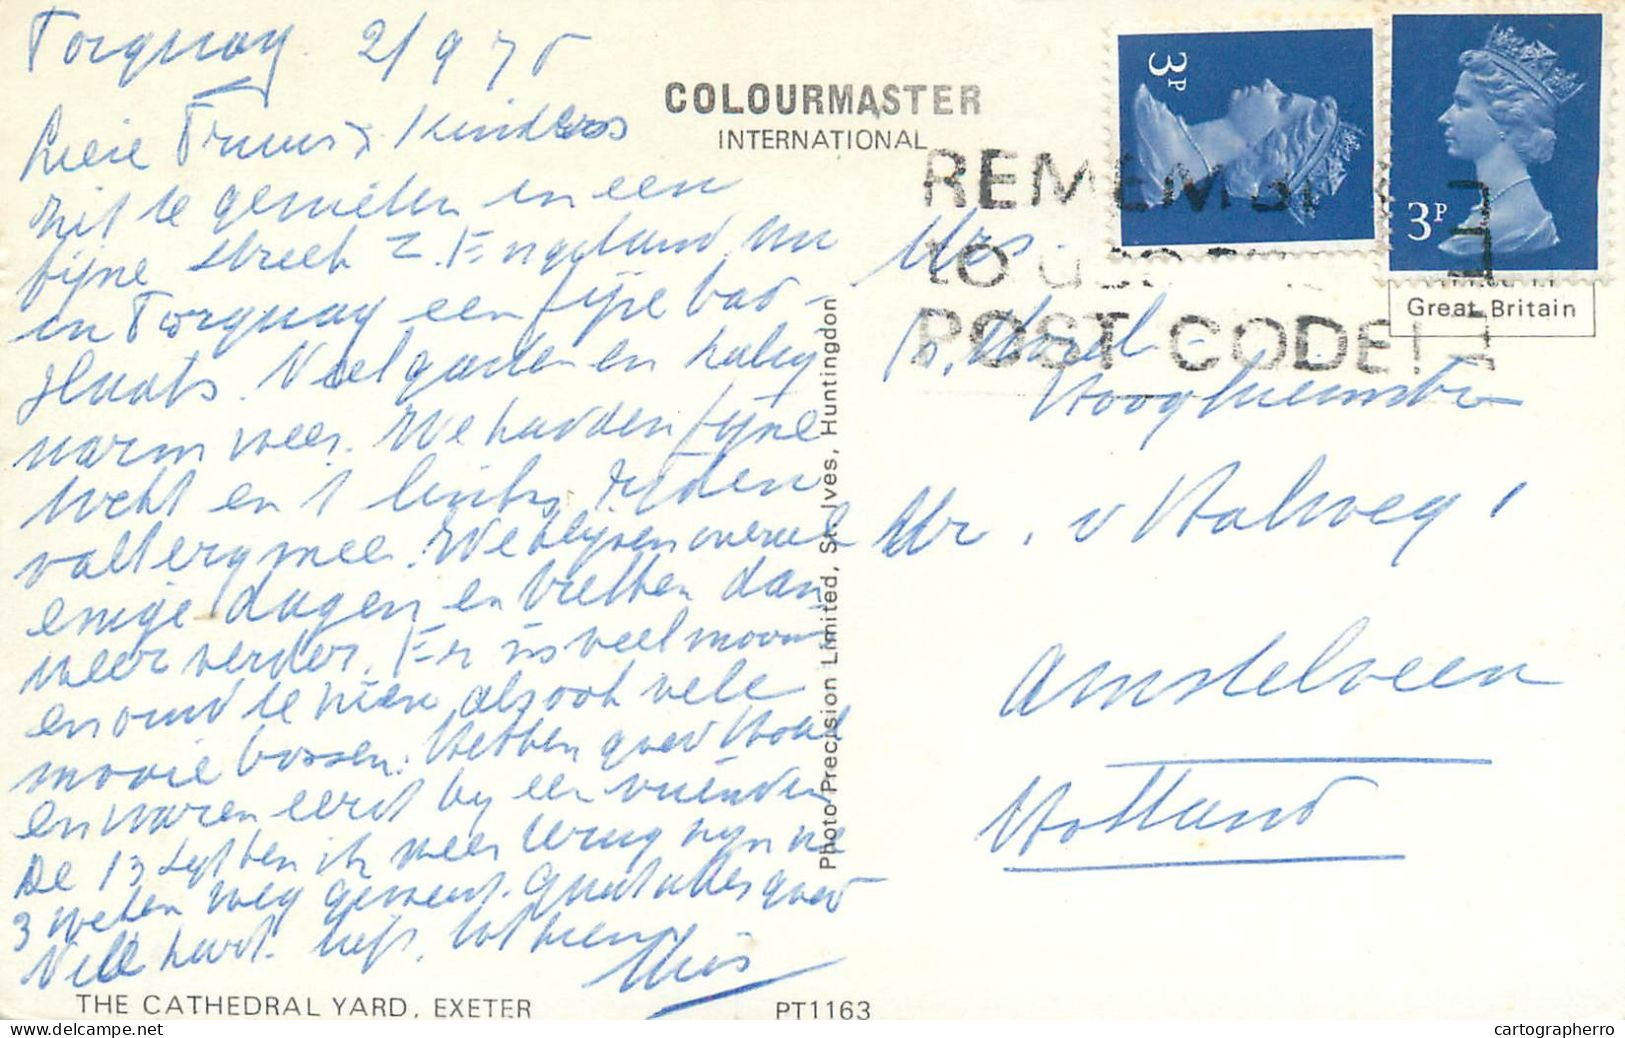 Torquay. 2/9 75
Lieve Truus & Kinders
Zit te genieten in een
fijne streek Z. Engeland nu
in Torquay een fijne bad-
plaats. Veel gasten en
warm weer. We hadden fijne
en 1 links rijden
valt erg mee. We blijven overal
enige dagen en trekken dan
weer verder. Er is veel moois
en oud te zien alsook vele
mooie bossen. Hebben goed Hotel
en waren eerst by een vrienden
De 13 Sept ben ik weer terug zijn we
3 weken weg geweest. Gaat alles goed
Vele hart. liefs. tot ziens
COLOURMASTER
INTERNATIONAL
Photo Precision Limited, St. Ives, Huntingdon
THE CATHEDRAL YARD, EXETER
PT1163
3P
3P
REMEMBER
TO USE THE
POST CODE!
Great Britain
Mrs.
Mr. v
Amstelveen
Holland
delcampe.net
cartographerro